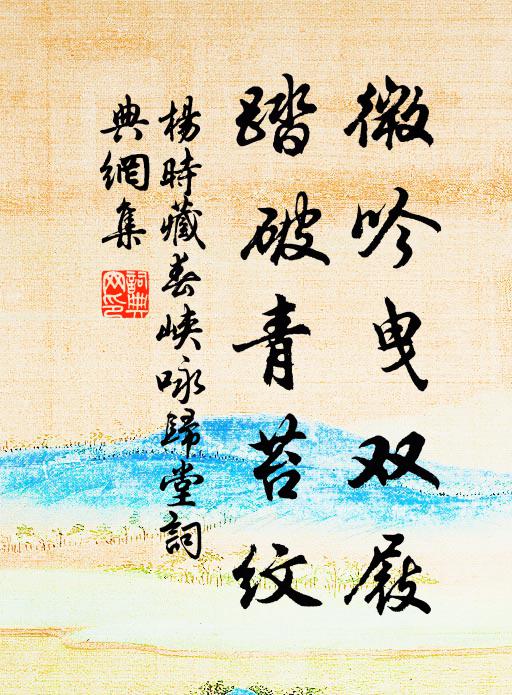 微吟曳双屐
踏破青苔纹
杨时藏春峡咏归堂词
典網集
詞典網印